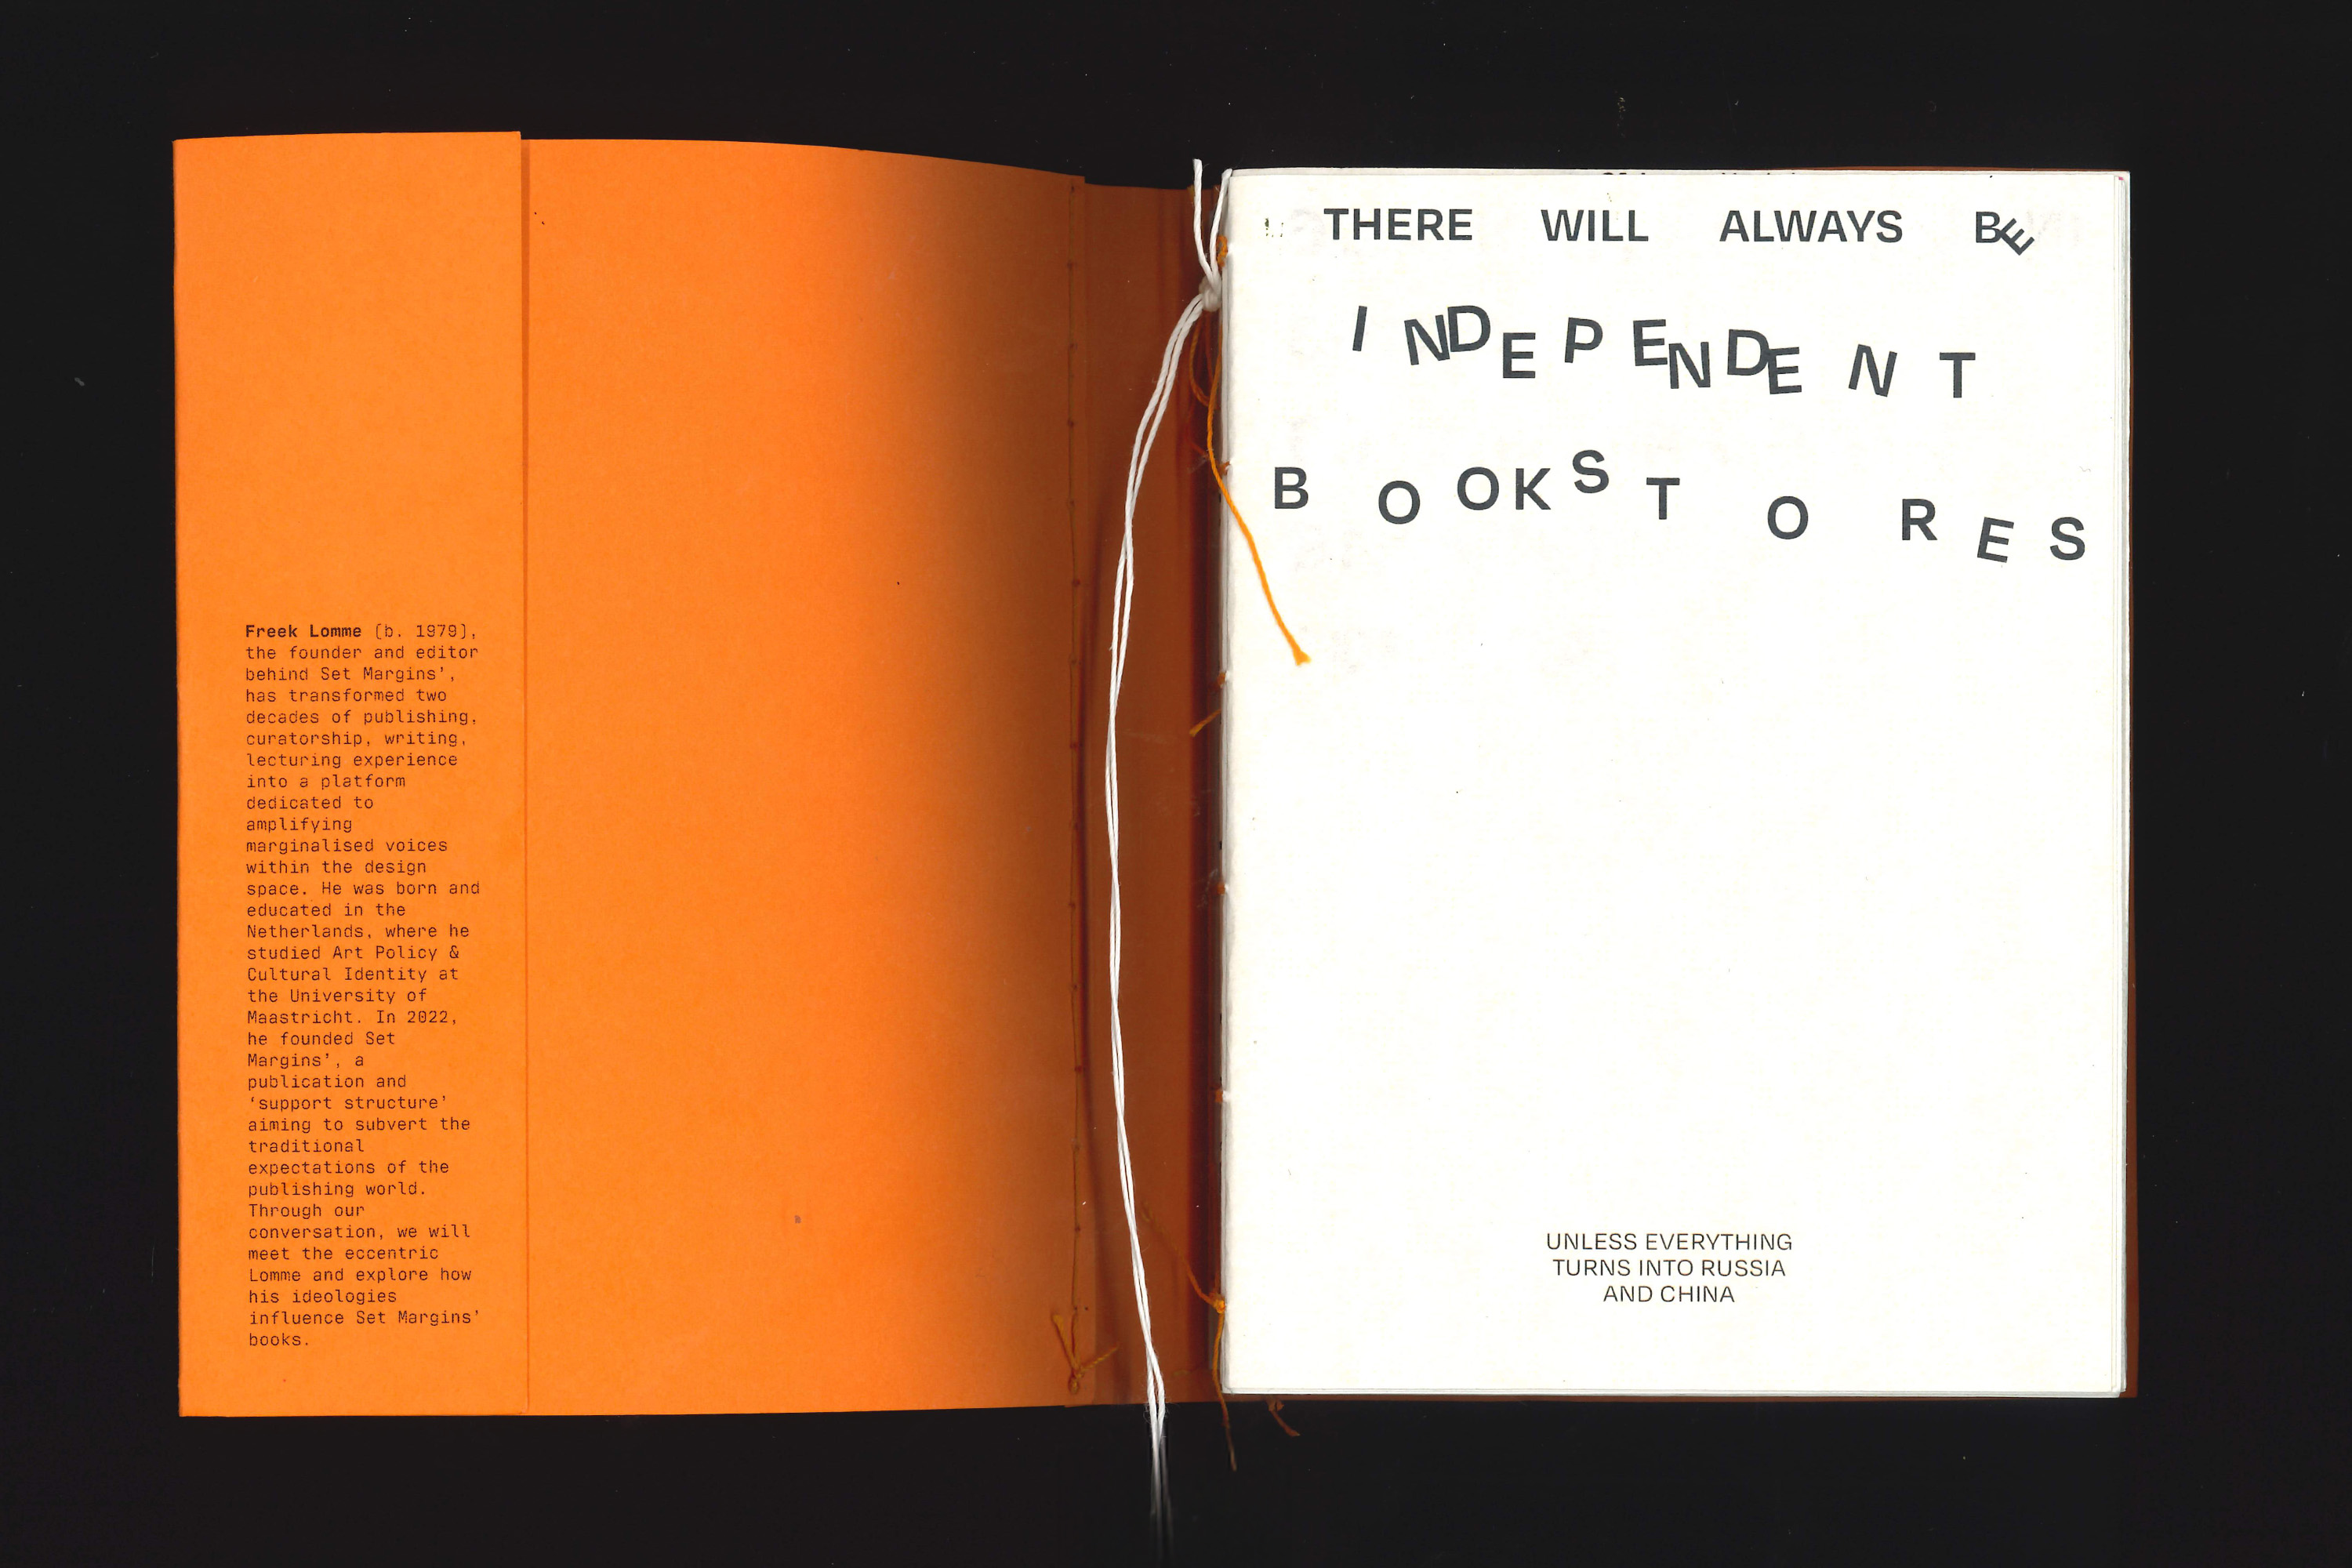 Freek Lomme (b. 1979),
the founder and editor
behind Set Margins',
has transformed two
decades of publishing,
curatorship, writing,
lecturing experience
into a platform
dedicated to
amplifying
marginalised voices
within the design
space. He was born and
educated in the
Netherlands, where he
studied Art Policy &
Cultural Identity at
the University of
Maastricht. In 2022,
he founded Set
Margins', a
publication and
‘support structure’
aiming to subvert the
traditional
expectations of the
publishing world.
Through our
conversation, we will
meet the eccentric
Lomme and explore how
his ideologies
influence Set Margins'
books.
THERE WILL ALWAYS BE
INDEPENDENT
BOOKSTORES
UNLESS EVERYTHING
TURNS INTO RUSSIA
AND CHINA